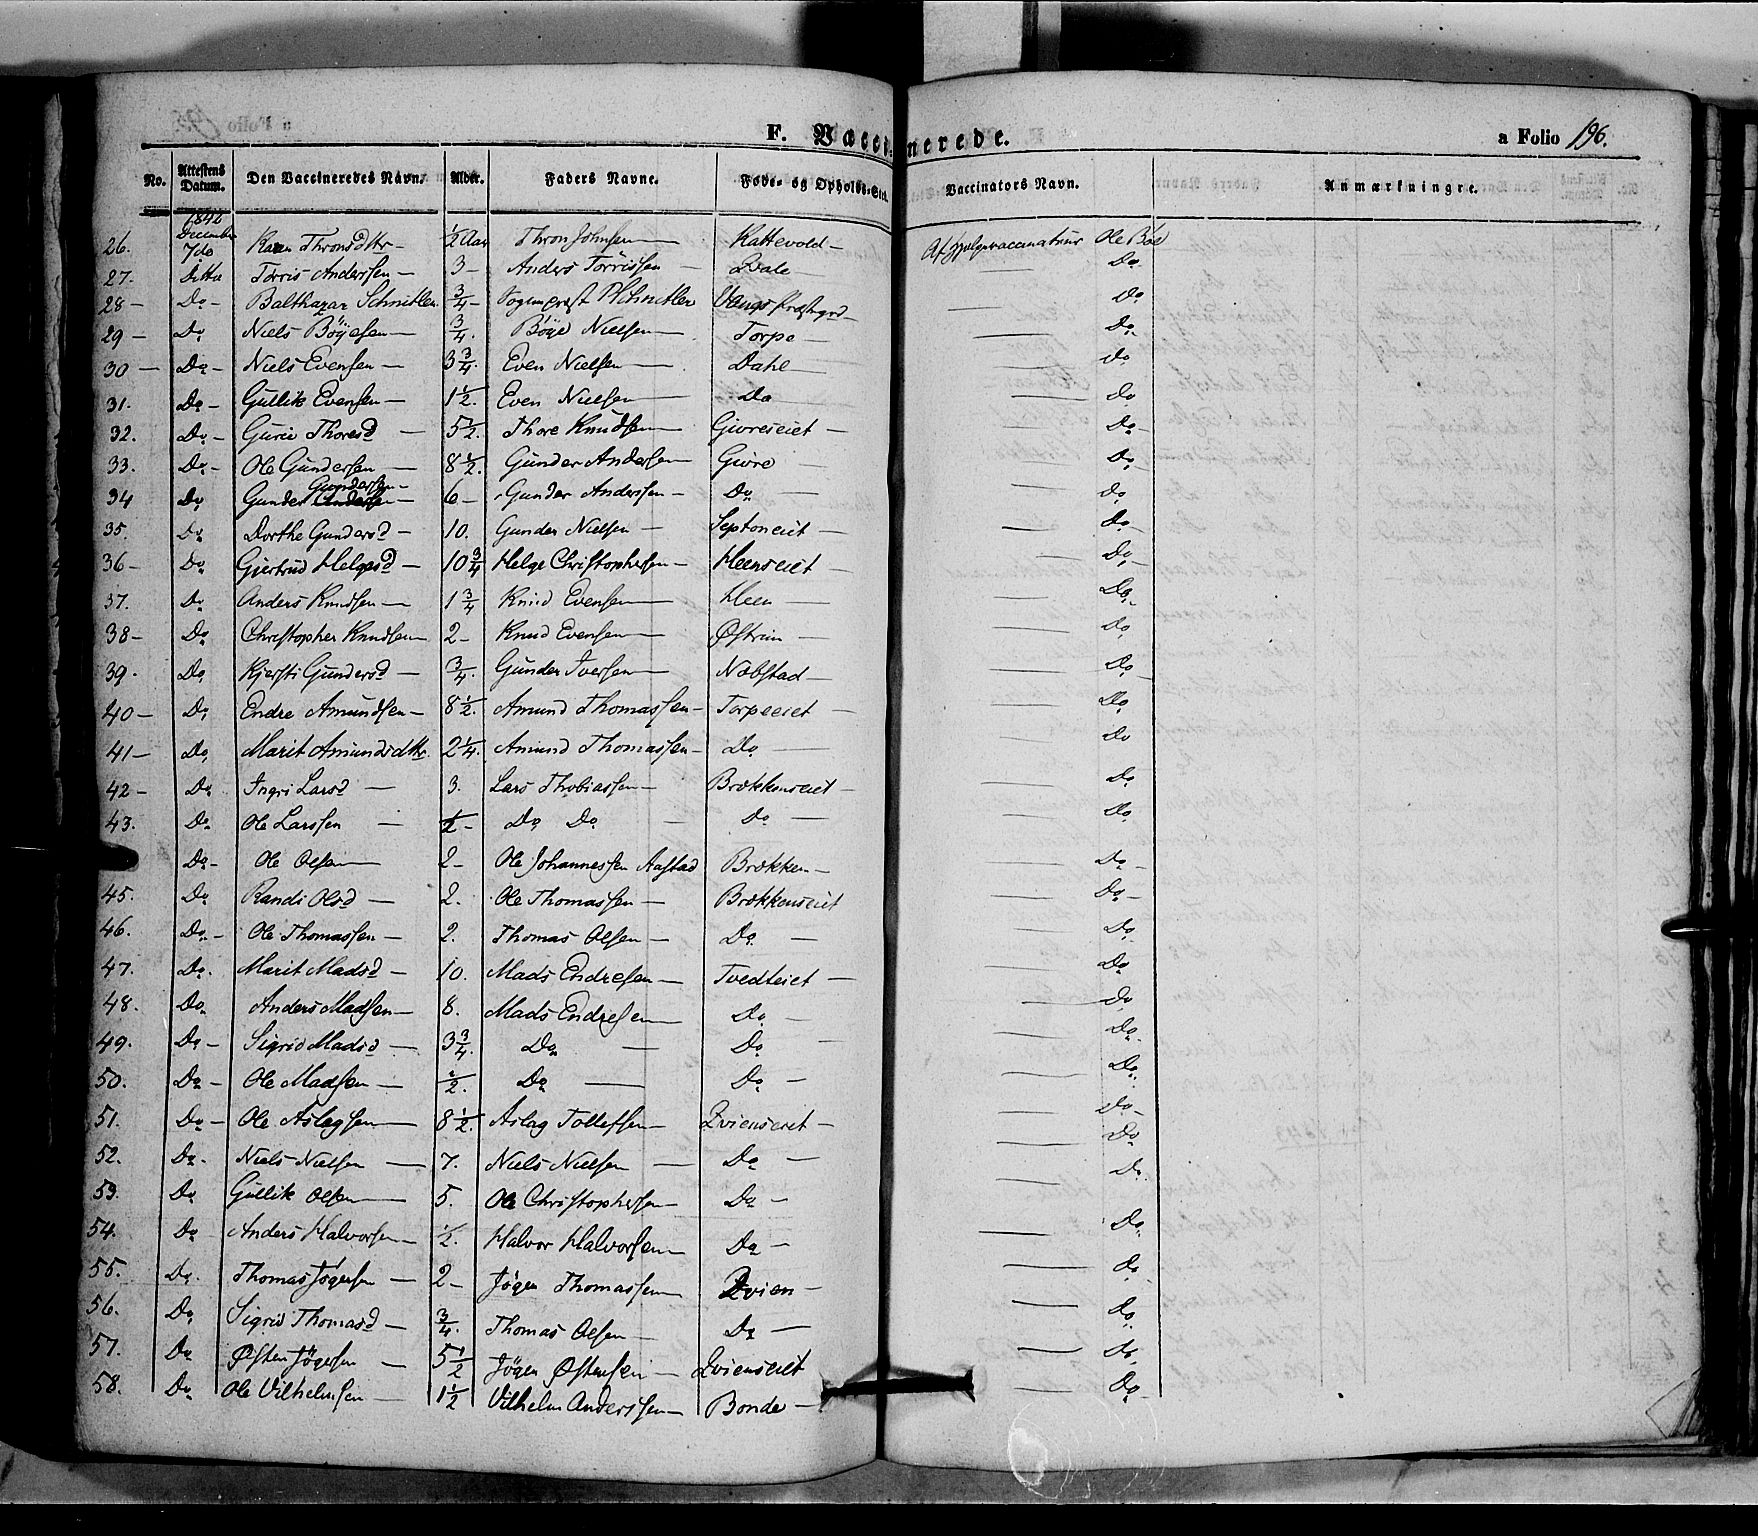 F. Vaccinerede. a Folio 196.
No. Attestens Datum. Den Vaccineredes Navn. Alder. Faders Navne. Føde- og Opholds-Sted. Vaccinators Navn. Anmærkninger.
1842 December
26. 7de Karen Thronsdttr – ½ Aar Thron Johnsen – Kattevold – Af Hjelpevaccinateur Ole Bøe
27. Ditto Torris Andersen – 3 – Anders Torrissen – Qvale — Do
28 – Do – Balthazar Schnitler ¾ – Sogneprest Schnitler Vangs Prestgrd – — Do
29 – Do Niels Böyesen – ¾. Böye Nielsen – Torpe — — Do
30 – Do – Niels Evensen – 3¾. Even Nielsen – Dahle — — Do
31. Do – Gullik Evensen – 1½. Even Nielsen – Do — Do
32. Do – Guri Thoresd – 5½. Thore Knudsen – Givreseiet – — Do –
33. Do – Ole Gundersen – 8½. Gunder Andersen – Givre – — Do
34 Do Gunder Gundersen – 6 – Gunder Anderssen – Do — — Do
35. Do Dorthe Gundersd – 10. Gunder Nielsen – Septoneiet – — Do –
36 – Do Giertrud Helgesd – 10¾ Helge Christophersen – Heenseiet – — Do –
37. Do Anders Knudsen – 1¾ Knud Evensen – Heen — — Do –
38 – Do Christopher Knudsen 2 – Knud Evensen – Østrein – — Do
39. Do Kjersti Gundersd – ¾. Gunder Iversen – Nøbstad – — Do –
40 – Do Endre Amundsen – 8½. Amund Thomassen – Torpeeiet – — Do
41 – Do, Marit Amundsdttr. 2¼. Amund Thomassen – Do — — Do
42 – Do Ingri Larsd – 3. Lars Thobiassen – Brøkkenseiet – — Do
43. Do Ole Larssen – ½ – Do Do – Do — — Do
Do – Ole Olsen – 2 – Ole Johannessen Aastad Brøkken – — Do –
45. Do Randi Olsd – 2. Ole Thomassen – Brøkkenseiet — Do –
46. Do – Ole Thomassen – 2. Thomas Olsen – Do — — Do
47. Do. Marit Madsd – 10. Mads Endresen – Tvedteiet – — Do
48. Do Anders Madsen – 8. Mads Endresen – Do – — Do
49. Do – Sigrid Madsd – 3¾. Do — Do — Do
50. Do – Ole Madsen – ½. Do — Do – — Do
51. Do – Ole Aslagsen – 8½. Aslag Tollefsen – Qvienseiet – — Do –
52. Do. Niels Nielsen — 7. Niels Nielsen — Do — — Do
53. Do Gullik Olsen – 5. Ole Christophersen – Do – — Do
54. Do Anders Halvorsen – ½. Halvor Halvorsen – Do – — Do
55. Do. Thomas Jögersen – 2 – Jöger Thomassen – Qvien – — Do
56. Do Sigrid Thomasd – ¾. Thomas Olsen – Do — — Do
57. Do Østen Jögersen – 5½ Jöger Østensen – Qvienseiet — Do
58. Do Ole Vilhelmsen – 1½ Vilhelm Anderssen – Bonde – — Do